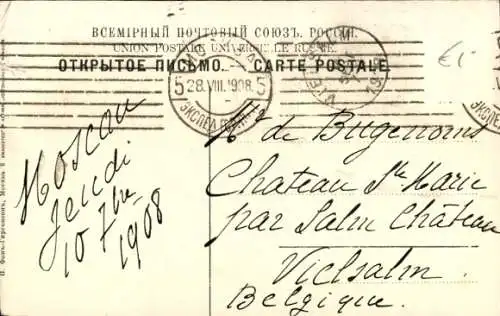 ВСЕМІРНЫЙ ПОЧТОВЫЙ СОЮЗЪ. РОССІЯ.
UNION POSTALE UNIVERSELLE RUSSIE.
ОТКРЫТОЕ ПИСЬМО. — CARTE POSTALE.
€1-
5 28.VIII.1908. 5
Moscou
Jeudi
10 7bre
1908
Mme de Bugenoms
Chateau Ste Marie
par Salm Château
Vielsalm
Belgique.